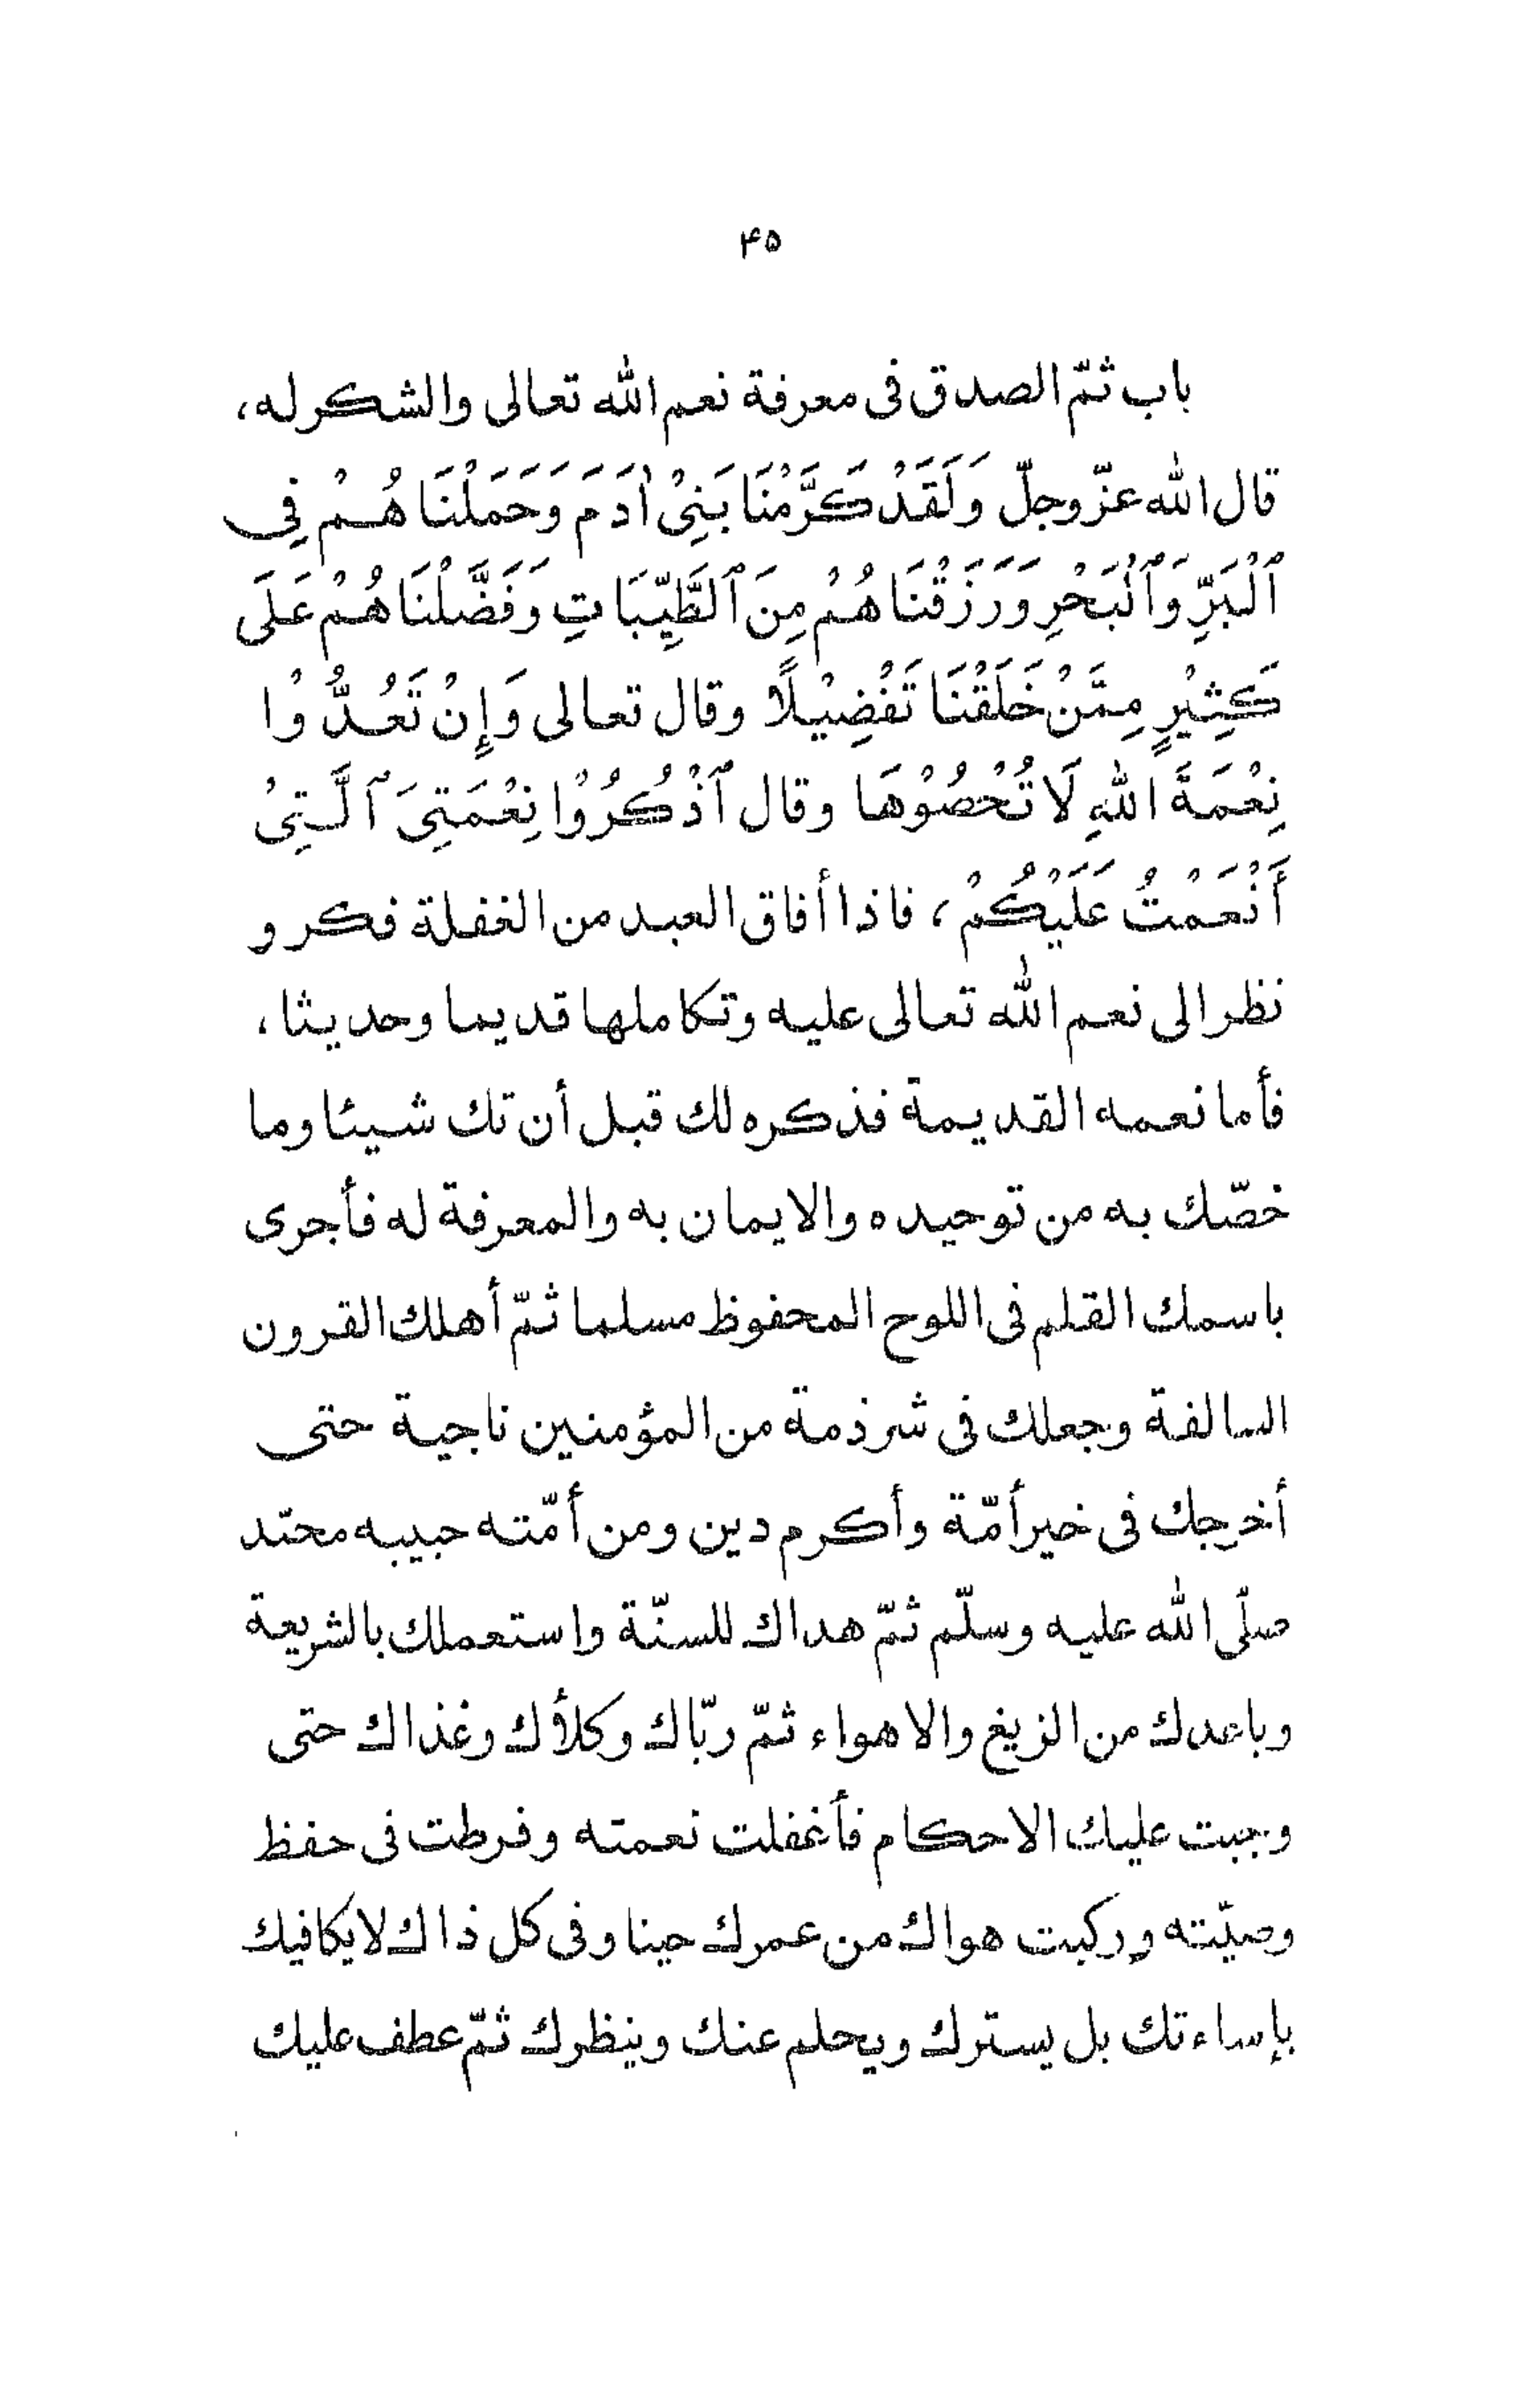 ۴۵
باب ثمّ الصدق فى معرفة نعم الله تعالى والشكر له،
قال الله عزّ وجلّ وَلَقَدْ كَرَّمْنَا بَنِىْ اٰدَمَ وَحَمَلْنَاهُمْ فِى
ٱلْبَرِّ وَٱلْبَحْرِ وَرَزَقْنَاهُمْ مِنَ ٱلطَّيِّبَاتِ وَفَضَّلْنَاهُمْ عَلَى
كَثِيْرٍ مِمَّنْ خَلَقْنَا تَفْضِيْلًا وقال تعالى وَإِنْ تَعُدُّوْا
نِعْمَةَ اللهِ لَا تُحْصُوْهَا وقال ٱذْكُرُوْا نِعْمَتِىَ ٱلَّتِىْ
أَنْعَمْتُ عَلَيْكُمْ، فاذا أفاق العبد من الغفلة فكر و
نظر الى نعم الله تعالى عليه وتكاملها قديما وحديثا،
فأما نعمه القديمة فذكره لك قبل أن تك شيئا وما
خصّك به من توحيده والايمان به والمعرفة له فأجرى
باسمك القلم فى اللوح المحفوظ مسلما ثمّ أهلك القرون
السالفة وجعلك فى شرذمة من المؤمنين ناجية حتى
أخرجك فى خير أمّة وأكرم دين ومن أمّته حبيبه محمّد
صلّى الله عليه وسلّم ثمّ هداك للسنّة واستعملك بالشريعة
وباعدك من الزيغ والاهواء ثمّ ربّاك وكلأك وغذاك حتى
وجبت عليك الاحكام فأغفلت نعمته وفرطت فى حفظ
وصيّته وركبت هواك من عمرك حينا وفى كل ذاك لا يكافيك
بإساءتك بل يسترك ويحلم عنك وينظرك ثمّ عطف عليك